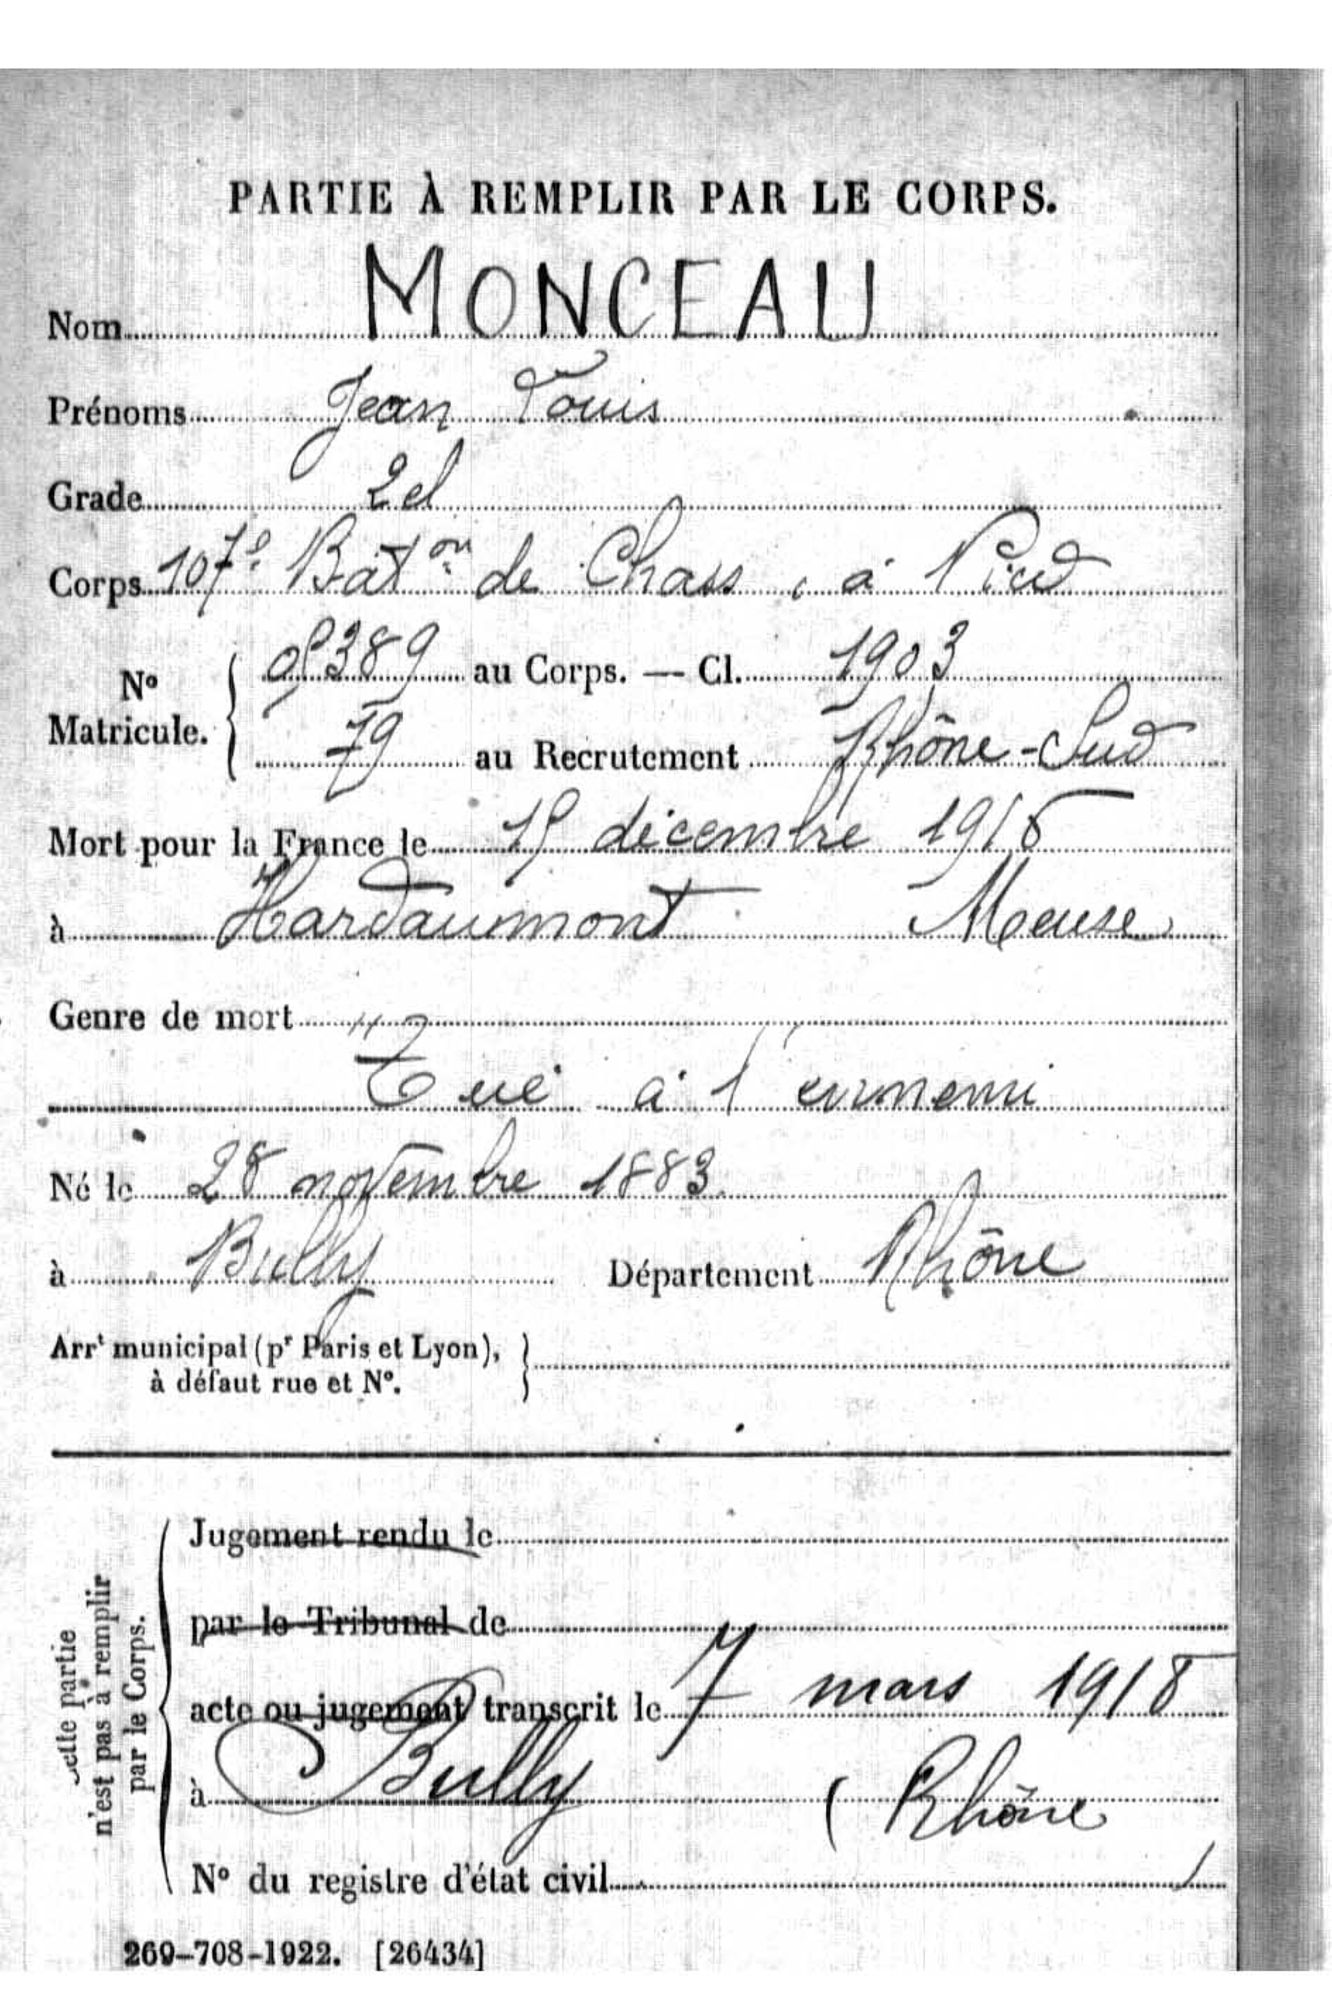 PARTIE À REMPLIR PAR LE CORPS.
Nom MONCEAU
Prénoms Jean Louis
Grade 2cl
Corps 107e Baton de Chass. à Pied
No Matricule. 389 au Corps. — Cl. 1903
79 au Recrutement Rhône-Sud
Mort pour la France le 15 décembre 1916
à Hardaumont Meuse
Genre de mort "
Tué à l'ennemi
Né le 28 novembre 1883
à Bully Département Rhône
Arrt municipal (pr Paris et Lyon),
à défaut rue et No.
Cette partie
n'est pas à remplir
par le Corps.
Jugement rendu le
par le Tribunal de
acte ou jugement transcrit le 7 mars 1918
à Bully (Rhône
No du registre d'état civil
269-708-1922. [26434]